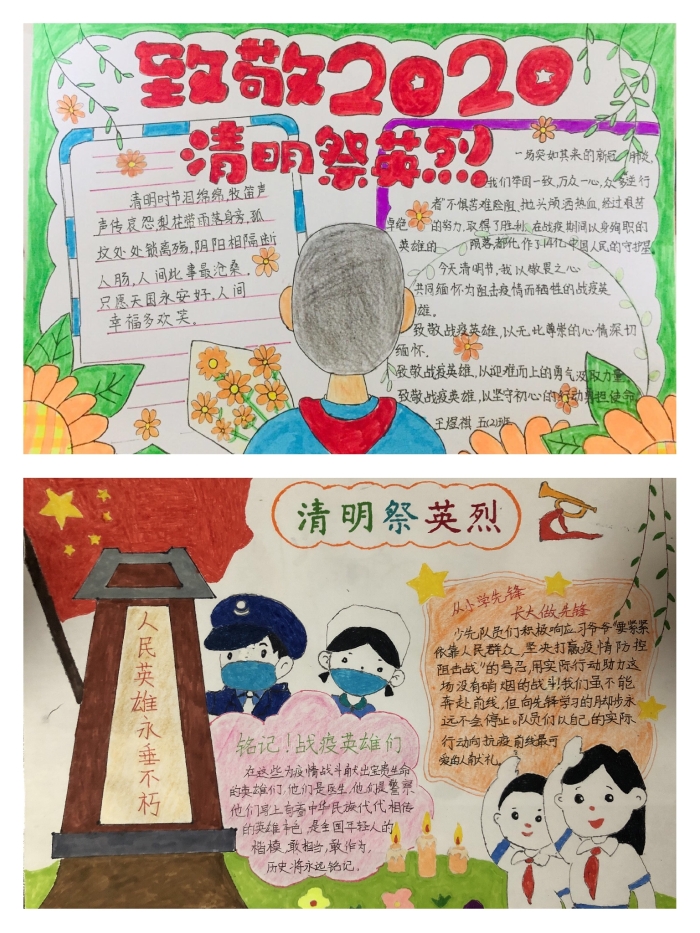 致敬2020
清明祭英烈
清明时节泪绵绵,牧笛声
声传哀怨,梨花带雨落身旁,孤
坟处处锁离殇,阴阳相隔断
人肠,人间此事最沧桑.
只愿天国永安好,人间
幸福多欢笑.
一场突如其来的新冠
我们举国一致,万众一心,众多逆行
者不惧苦难险阻,抛头颅洒热血,经过艰苦
卓绝的努力,取得了胜利.在战疫期间以身殉职的
英雄的陨落都化作了14亿中国人民的守护星.
今天清明节,我以敬畏之心
共同缅怀为阻击疫情而牺牲的战疫英
雄.
致敬战疫英雄,以无比尊崇的心情深切
缅怀.
致敬战疫英雄,以迎难而上的勇气汲取力量
致敬战疫英雄,以坚守初心的行动勇担使命
王煜祺 五(2)班
清明祭英烈
人民英雄永垂不朽
从小学先锋
长大做先锋
少先队员们积极响应习爷爷“要紧紧
依靠人民群众,坚决打赢疫情防控
阻击战”的号召,用实际行动助力这
场没有硝烟的战斗!我们虽不能
奔赴前线,但向先锋学习的脚步永
远不会停止。队员们以自己的实际
行动向抗疫前线最可
爱的人献礼。
铭记!战疫英雄们
在这些为疫情战斗献出宝贵生命
的英雄们,他们是医生,他们是警察.
他们写上有着中华民族代代相传
的英雄本色,是全国年轻人的
楷模,敢担当,敢作为,
历史将永远铭记。